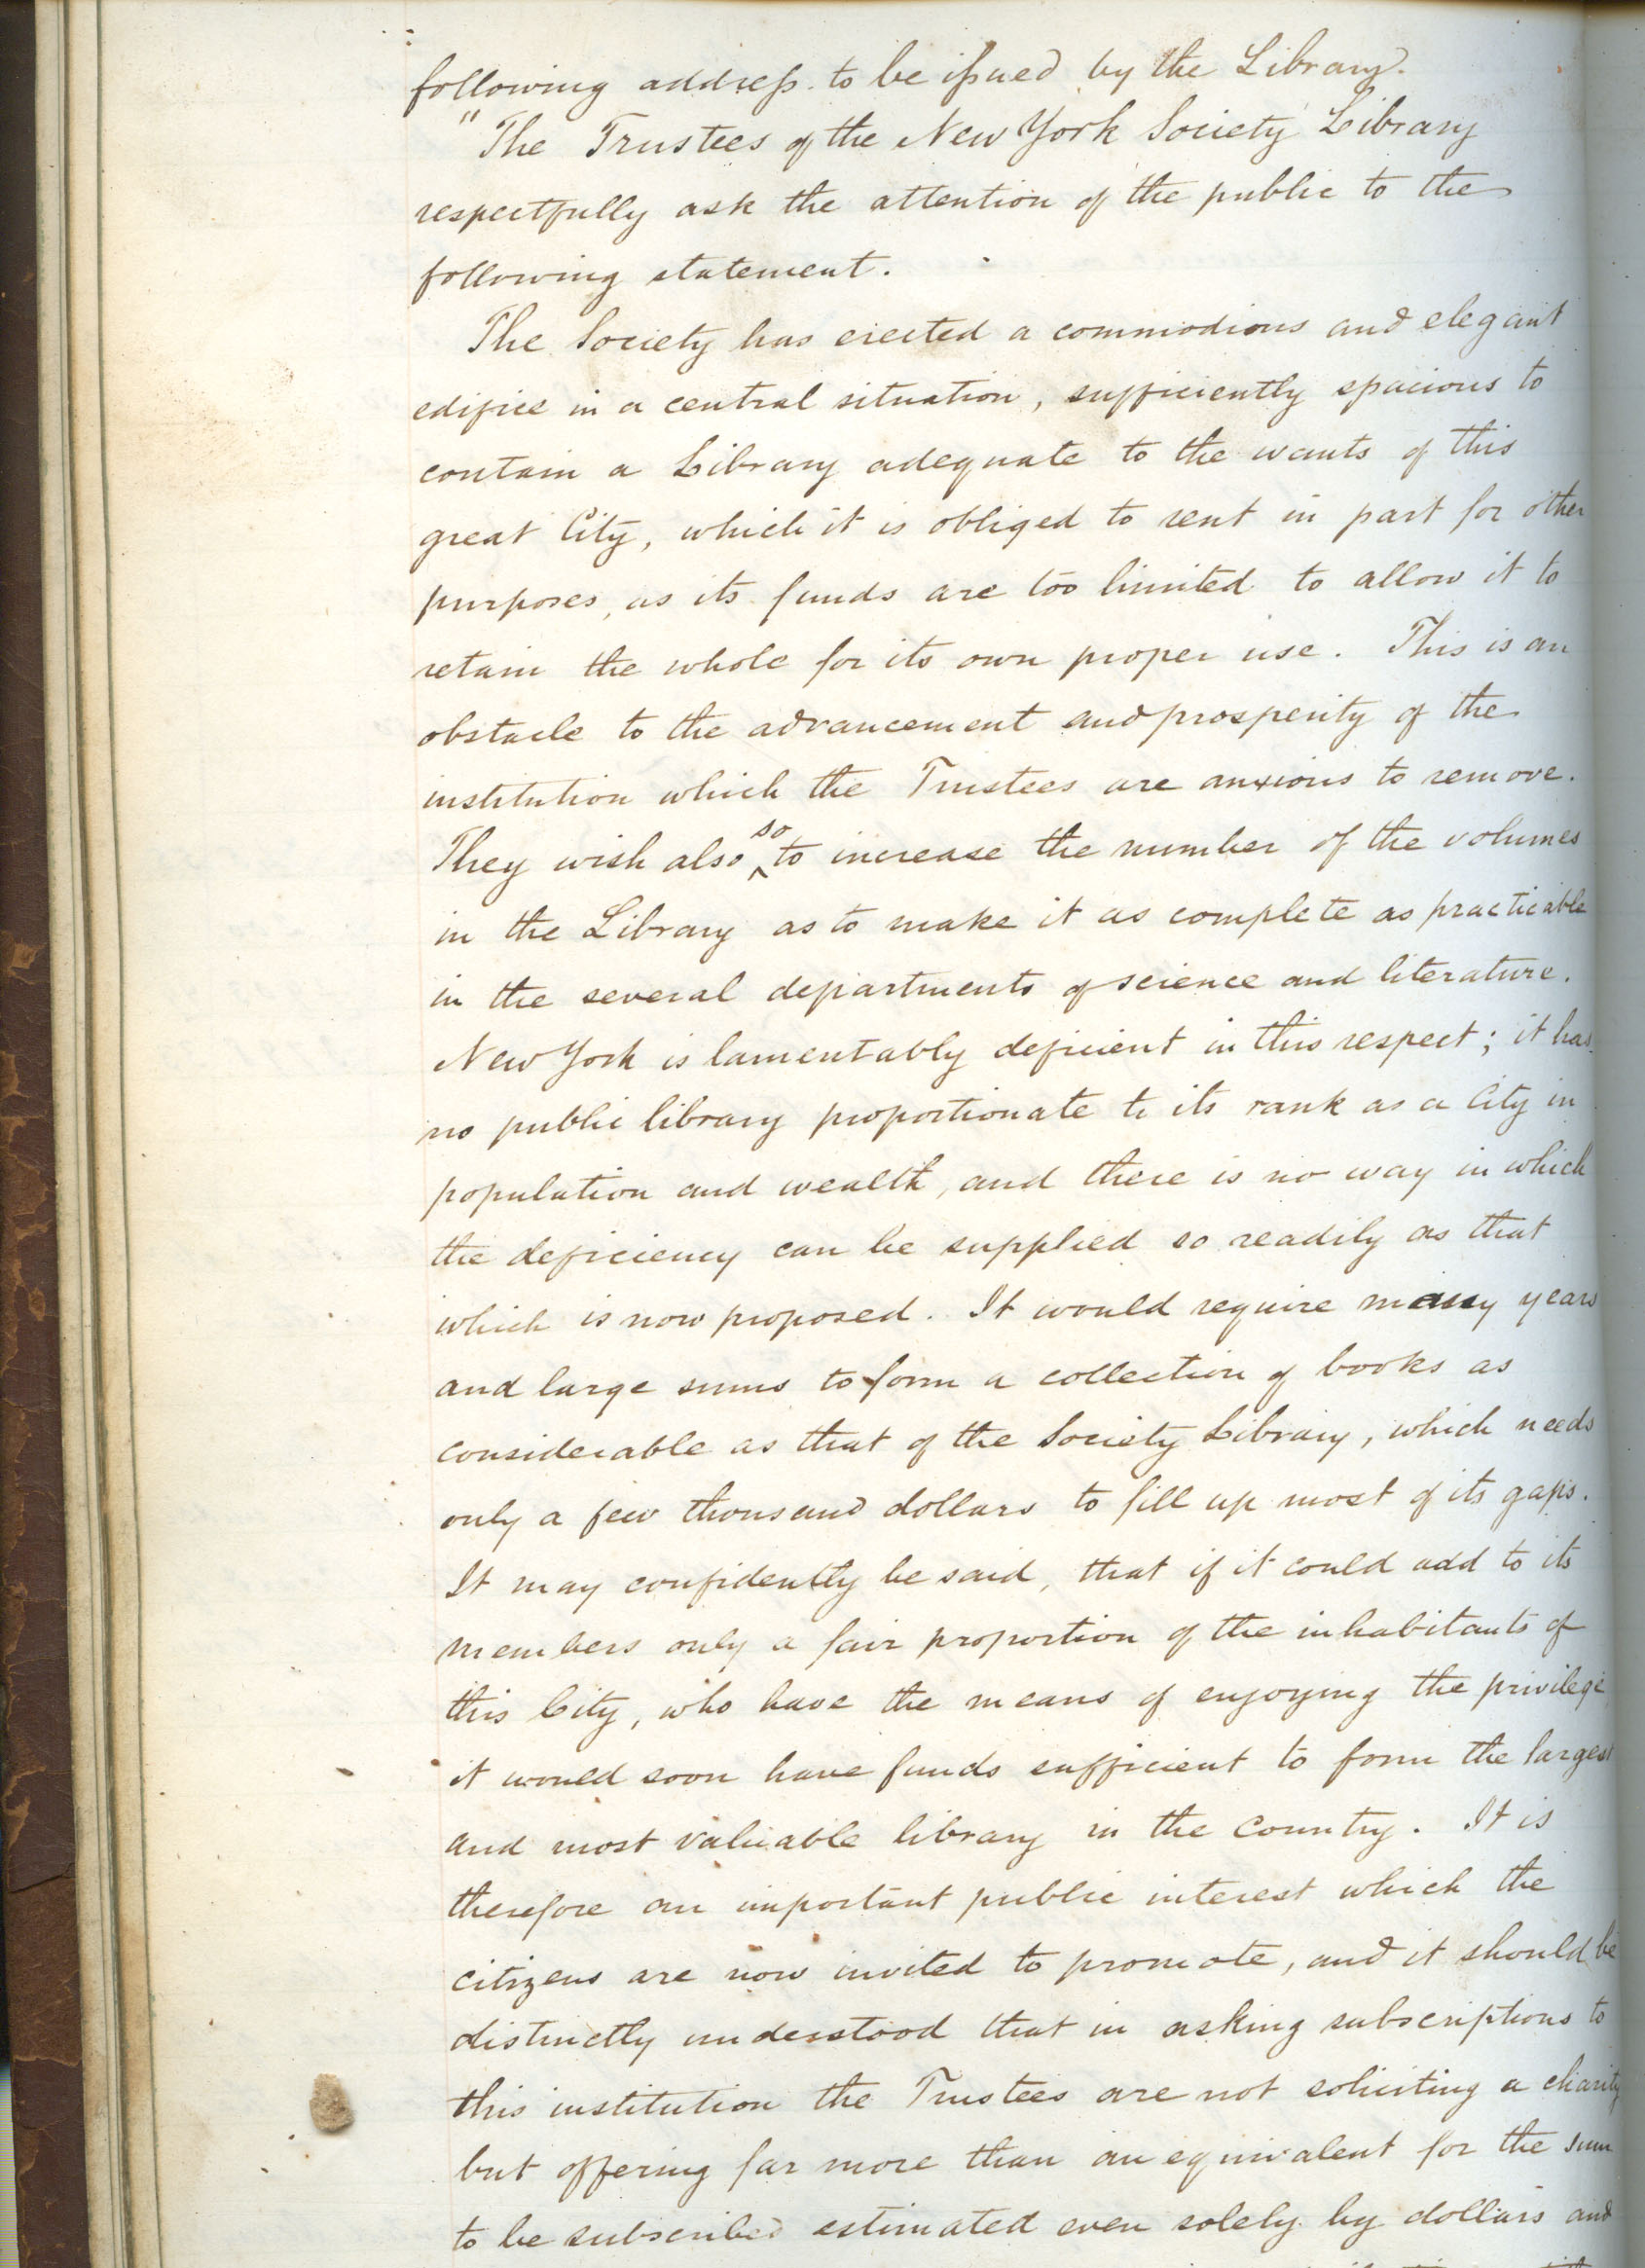 following address to be issued by the Library.
"The Trustees of the New York Society Library
respectfully ask the attention of the public to the
following statement.
The Society has erected a commodious and elegant
edifice in a central situation, sufficiently spacious to
contain a Library adequate to the wants of this
great City, which it is obliged to rent in part for other
purposes, as its funds are too limited to allow it to
retain the whole for its own proper use. This is an
obstacle to the advancement and prosperity of the
institution which the Trustees are anxious to remove.
They wish also so to increase the number of the volumes
in the Library as to make it as complete as practicable
in the several departments of science and literature.
New York is lamentably deficient in this respect; it has
no public library proportionate to its rank as a City in
population and wealth, and there is no way in which
the deficiency can be supplied so readily as that
which is now proposed. It would require many years
and large sums to form a collection of books as
considerable as that of the Society Library, which needs
only a few thousand dollars to fill up most of its gaps.
It may confidently be said, that if it could add to its
members only a fair proportion of the inhabitants of
this City, who have the means of enjoying the privilege
it would soon have funds sufficient to form the largest
and most valuable library in the Country. It is
therefore an important public interest which the
citizens are now invited to promote, and it should be
distinctly understood that in asking subscriptions to
this institution the Trustees are not soliciting a charity
but offering far more than an equivalent for the sum
to be subscribed estimated even solely by dollars and